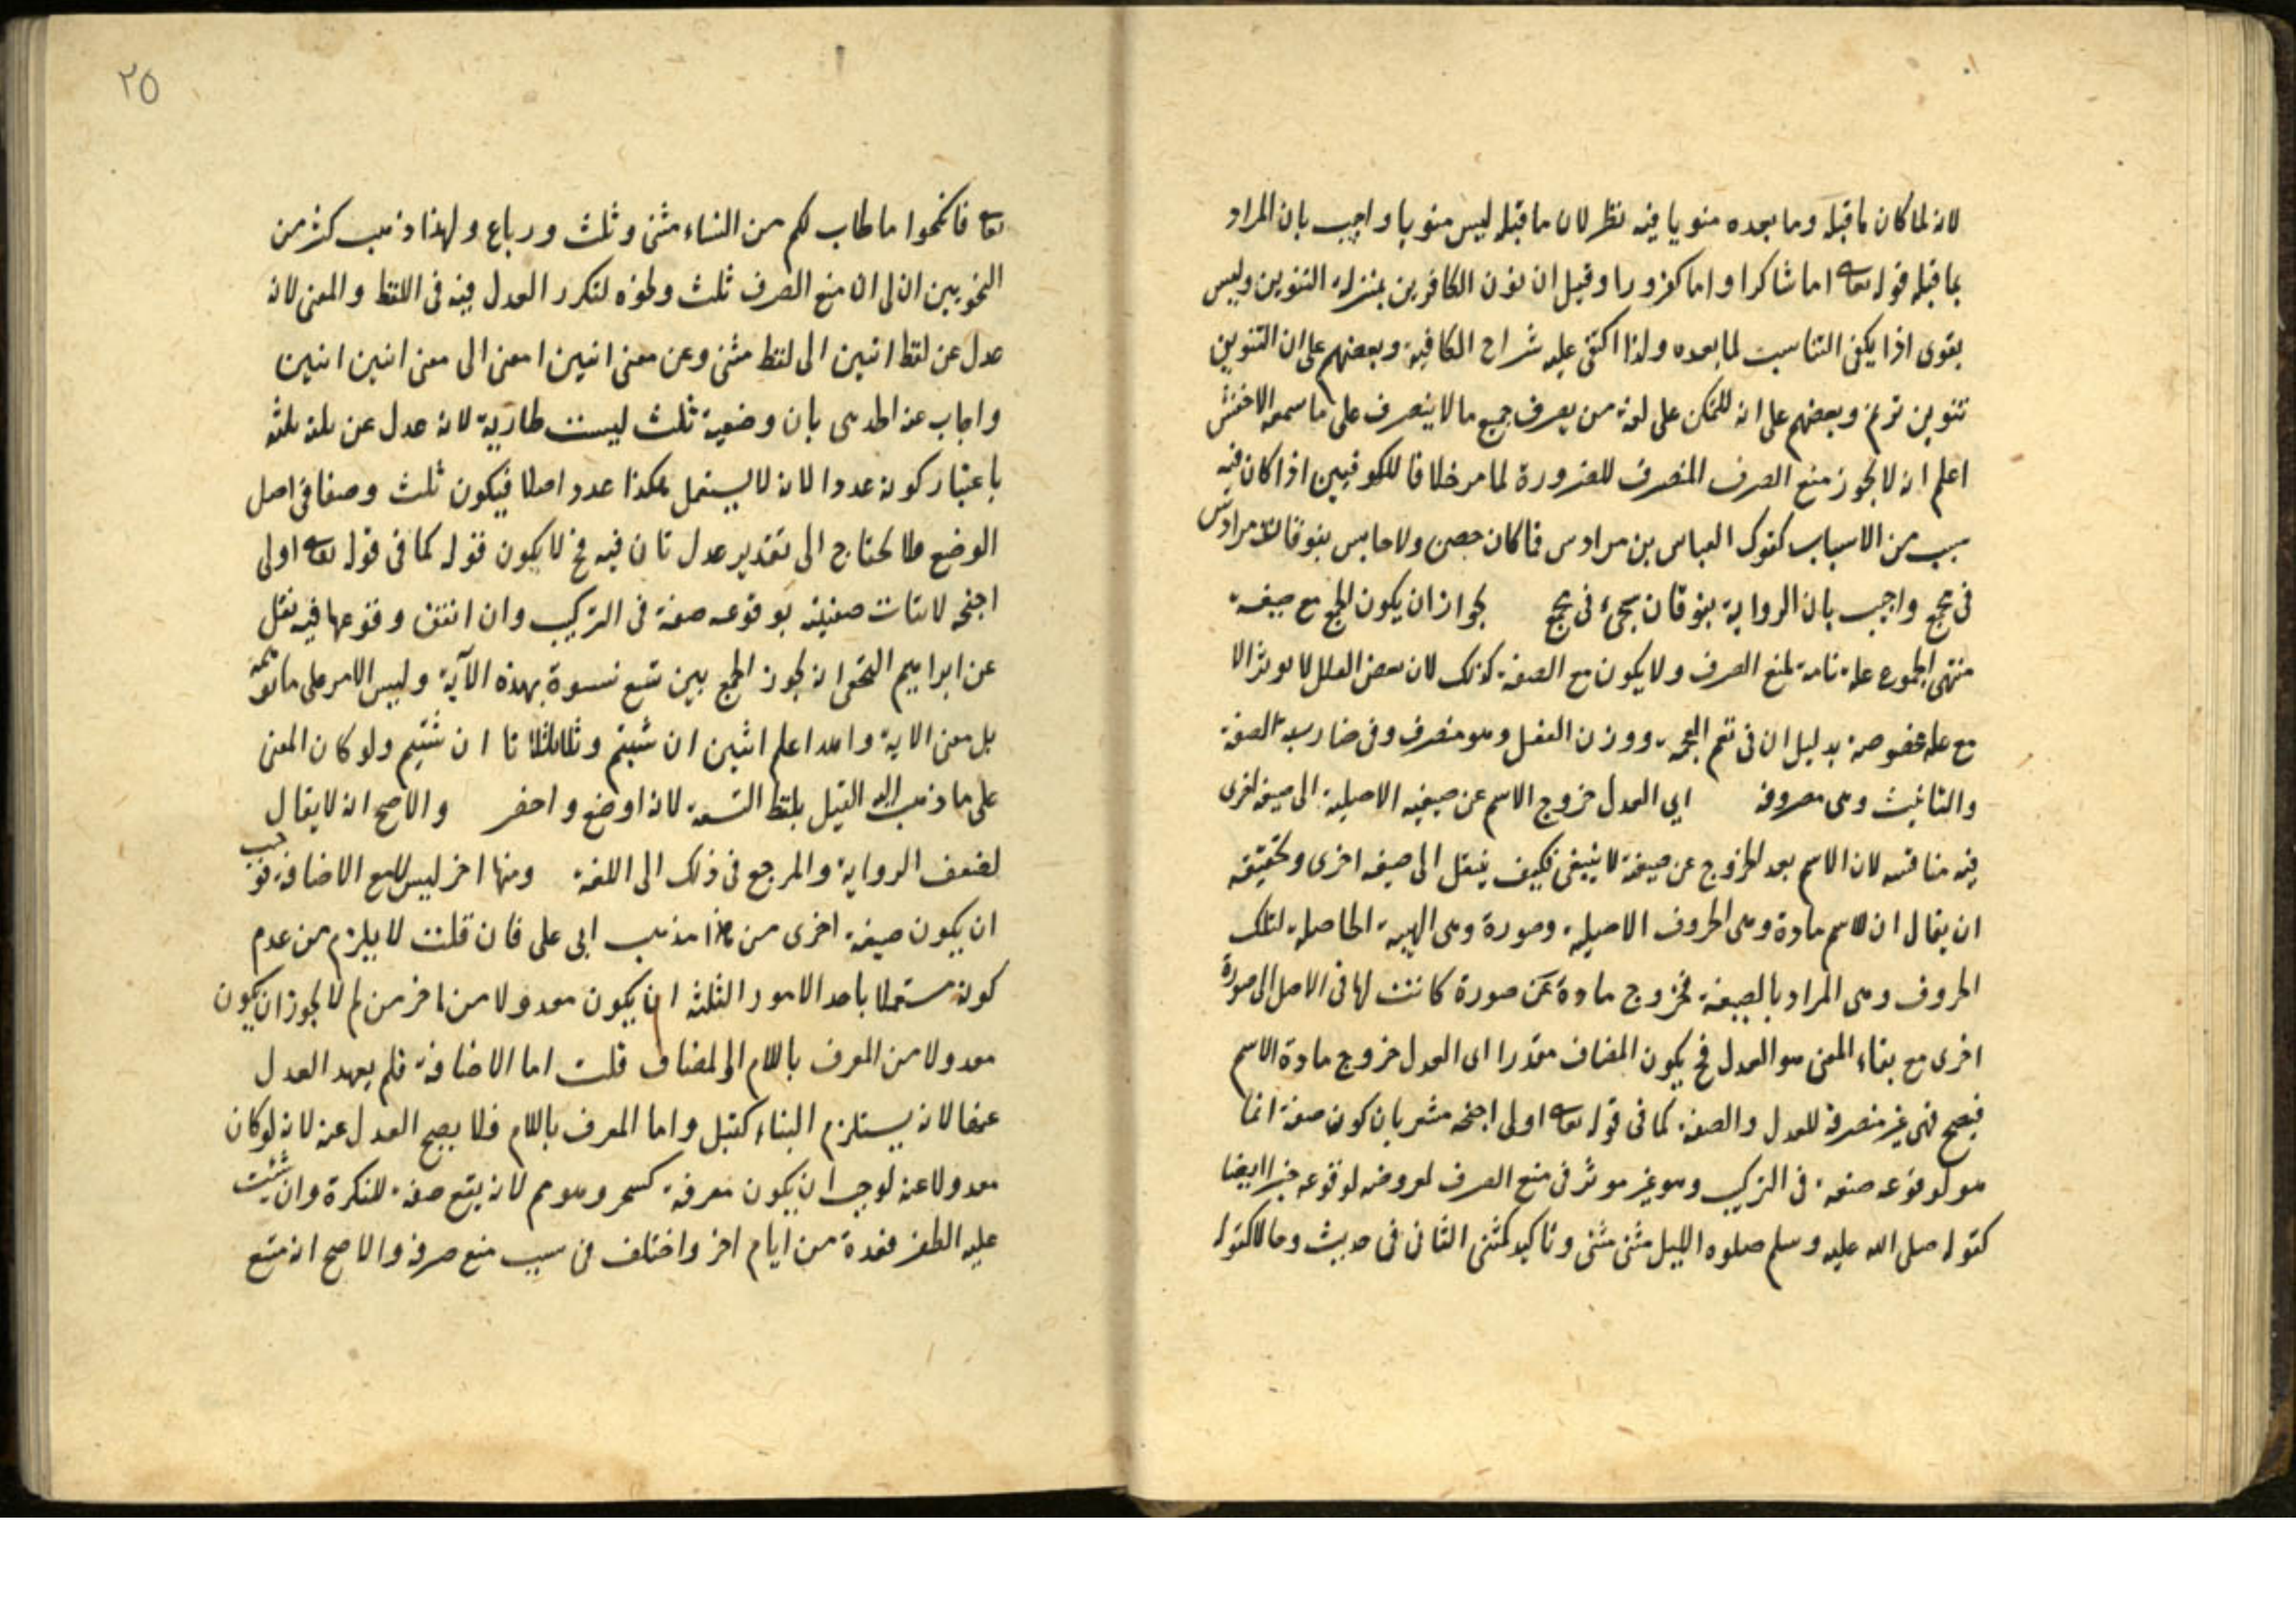 لانه لما كان ما قبله وما بعده منويا فيه نظر لان ما قبله ليس منويا واجيب بان المراد
بما قبله قوله تعا اما شاكرا واما كفورا وقيل ان نون الكافرين بمنزلة التنوين وليس
بقوى اذا يكفى التناسب لما بعده ولذا اكتفى عليه شراح الكافية وبعضهم على ان التنوين
تنوين ترنم وبعضهم على انه للتمكن على لغة من يصرف جميع ما لا ينصرف على ما سمعه الاخفش
اعلم انه لا يجوز منع الصرف المنصرف للضرورة لما مر خلافا للكوفيين اذا كان فيه
سبب من الاسباب كقوله العباس بن مرادس فما كان حصن ولا حابس يفوقان مرادس
فى مجمع واجيب بان الرواية يفوقان شيخى فى مجمع لجواز ان يكون الجمع مع صيغة
منتهى الجموع علة تامة لمنع الصرف ولا يكون مع الصفة كذلك لان بعض العلل لا يوثر الا
مع علة مخصوصة بدليل ان فى بقم العجمة ووزن الفعل وهو منصرف وفى ضاربة الصفة
والتانيث وهى مصروفة اى العدل خروج الاسم عن صيغته الاصلية الى صيغة اخرى
فيه مناقشة لان الاسم بعد الخروج عن صيغة لا يبقى فكيف ينقل الى صيغة اخرى وتحقيقه
ان يقال ان للاسم مادة وهى الحروف الاصلية وصورة وهى الهيية الحاصلة لتلك
الحروف وهى المراد بالصيغة فخروج مادة عن صورة كانت لها فى الاصل الى صورة
اخرى مع بقاء المعنى هو العدل فح يكون المضاف مقدرا اى العدل خروج مادة الاسم
فيصح فهى غير منصرفة للعدل والصفة كما فى قوله تعا اولى اجنحة مشعر بان كون صفة انما
هو لوقوعه صفة فى التركيب وهو غير موثر فى منع الصرف لعروضه لوقوعه خبرا ايضا
كقوله صلى الله عليه وسلم صلوة الليل مثنى مثنى وتاكيد كمثنى الثانى فى حديث وحالا كقوله
٢٥
تعا فانكحوا ما طاب لكم من النساء مثنى وثلث ورباع ولهذا ذهب كثر من
النحويين الى ان منع الصرف ثلث ونحوه لتكرر العدل فيه فى اللفظ والمعنى لانه
عدل عن لفظ اثنين الى لفظ مثنى وعن معنى اثنين اعنى الى معنى اثنين اثنين
واجاب عنه بان وضعية ثلث ليست طارية لانه عدل عن ثلثة ثلثة
باعتبار كونه عددا لانه لا يستعمل هكذا عدد اصلا فيكون ثلث وصفا فى اصل
الوضع فلا يحتاج الى تقدير عدل ثان فيه فح لا يكون قوله كما فى قوله تعا اولى
اجنحة لاثبات صفيته بوقوعه صفة فى التركيب وان اتفق وقوعها فيه نقل
عن ابراهيم النخعى انه يجوز الجمع بين تسع نسوة بهذه الآية وليس الامر على ما توهمه
بل معنى الاية والله اعلم اثنين ان شيتم وثلاثا ان شيتم ولو كان المعنى
على ما ذهب اليه القيل بلفظ التسعة لانه اوضح واخصر والاصح انه لا يقال
لضعف الرواية والمرجع فى ذلك الى اللغة ومنها اخر ليس للمع الاضافة فوجب
ان يكون صيغة اخرى من هذا مذهب ابى على فان قلت لا يلزم من عدم
كونه مستعملا باحد الامور الثلثة ان يكون معدولا من اخر من لم لا يجوز ان يكون
معدولا من المعرف باللام او المضاف قلت اما الاضافة فلم يعهد العدل
عنها لانه يستلزم البناء كقبل واما المعرف باللام فلا يصح العدل عنه لانه لو كان
معدولا عنه لوجب ان يكون معرفة كسحر وهو هم لانه يقع صفة للنكرة وان شئت
عليه الظفر فعدة من ايام اخر واختلف فى سبب منع صرفه والاصح انه منع